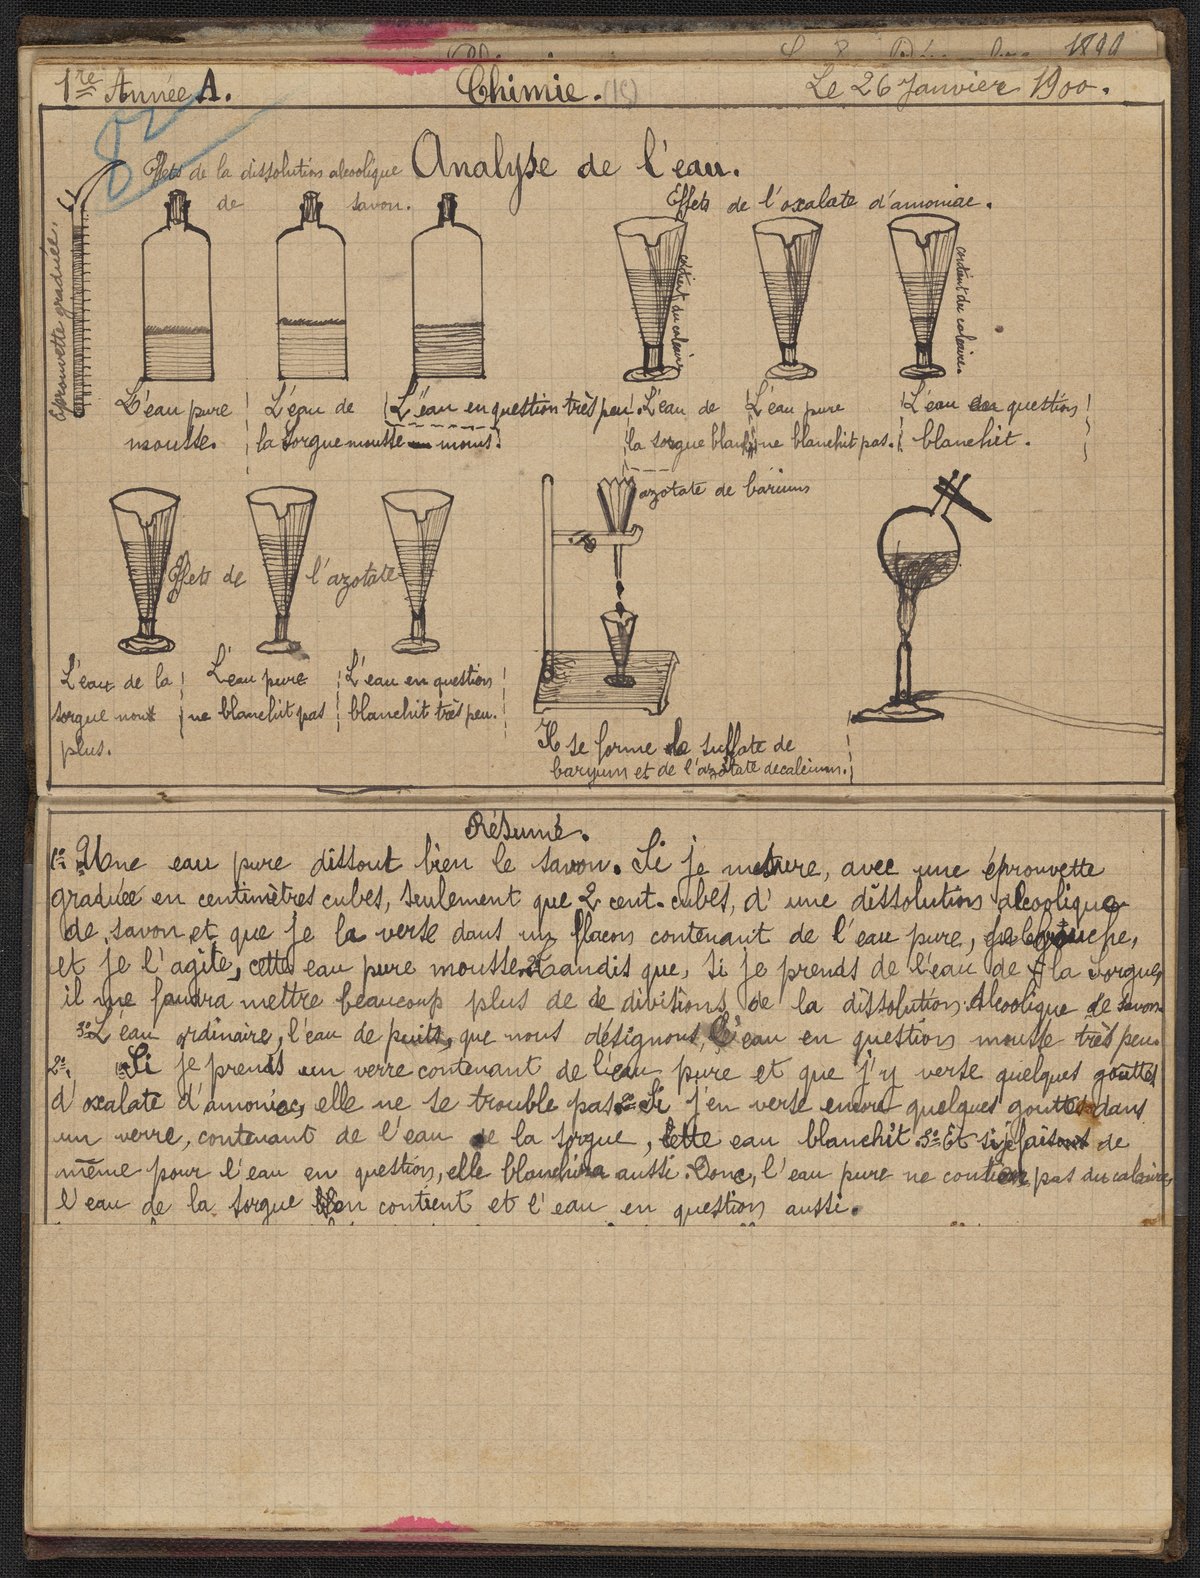 1899
1re Année A. Chimie. Le 26 Janvier 1900.
Analyse de l'eau.
Effets de la dissolution alcoolique
de savon.
Effets de l'oxalate d'amoniac.
éprouvette graduée.
contient du calcaire
contient du calcaire.
L'eau pure
mousse.
L'eau de
la Sorgue mousse
L'eau en question très peu
moins.
L'eau de
la sorgue blanchit
L'eau pure
ne blanchit pas.
L'eau en question
blanchit.
azotate de barium
Effets de l'azotate
L'eau de la
sorgue
plus.
L'eau pure
ne blanchit pas
L'eau en question
blanchit très peu.
Il se forme de sulfate de
baryum et de l'azotate de calcium.
Résumé.
1o Une eau pure dissout bien le savon. Si je mesure, avec une éprouvette
graduée en centimètres cubes, seulement que 2 cent. cubes, d'une dissolution alcoolique
de savon et que je la verse dans un flacon contenant de l'eau pure,
et je l'agite, cette eau pure mousse. 2o Tandis que, si je prends de l'eau de la Sorgue,
il me faudra mettre beaucoup plus de de divisions de la dissolution Alcoolique de savon
3o L'eau ordinaire, l'eau de puits, que nous désignons, L'eau en question mousse très peu.
2o. 1o Si je prends un verre contenant de l'eau pure et que j'y verse quelques gouttes
d'oxalate d'amoniac, elle ne se trouble pas. 2o Si j'en verse encore quelques gouttes dans
un verre, contenant de l'eau de la sorgue, cette eau blanchit. 3o Et si je faisons de
même pour l'eau en question, elle blanchira aussi. Donc, l'eau pure ne contient pas du calcaire,
l'eau de la sorgue en contient et l'eau en question aussi.